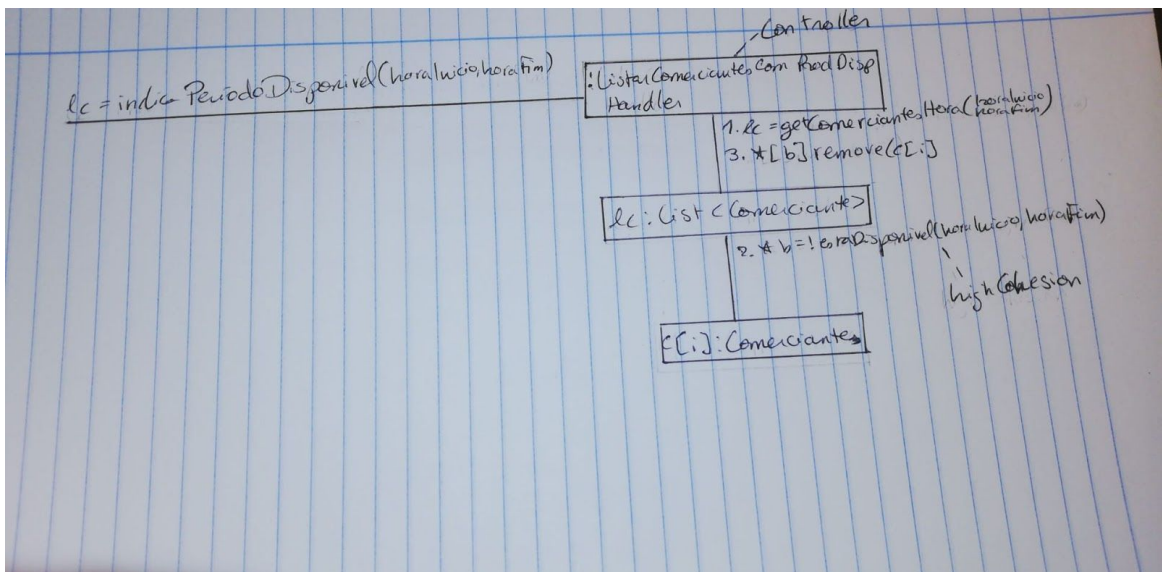 Controller
lc = indica PeriodoDisponivel(horaInicio,horaFim)
:ListarComerciantesComProdDisp
Handler
1. lc = getComerciantesHora(horaInicio
horaFim)
3. *[b] remove(c[i]
lc: List<Comerciante>
2. * b = ! estaDisponivel(horaInicio,horaFim)
high Cohesion
c[i]:Comerciantes